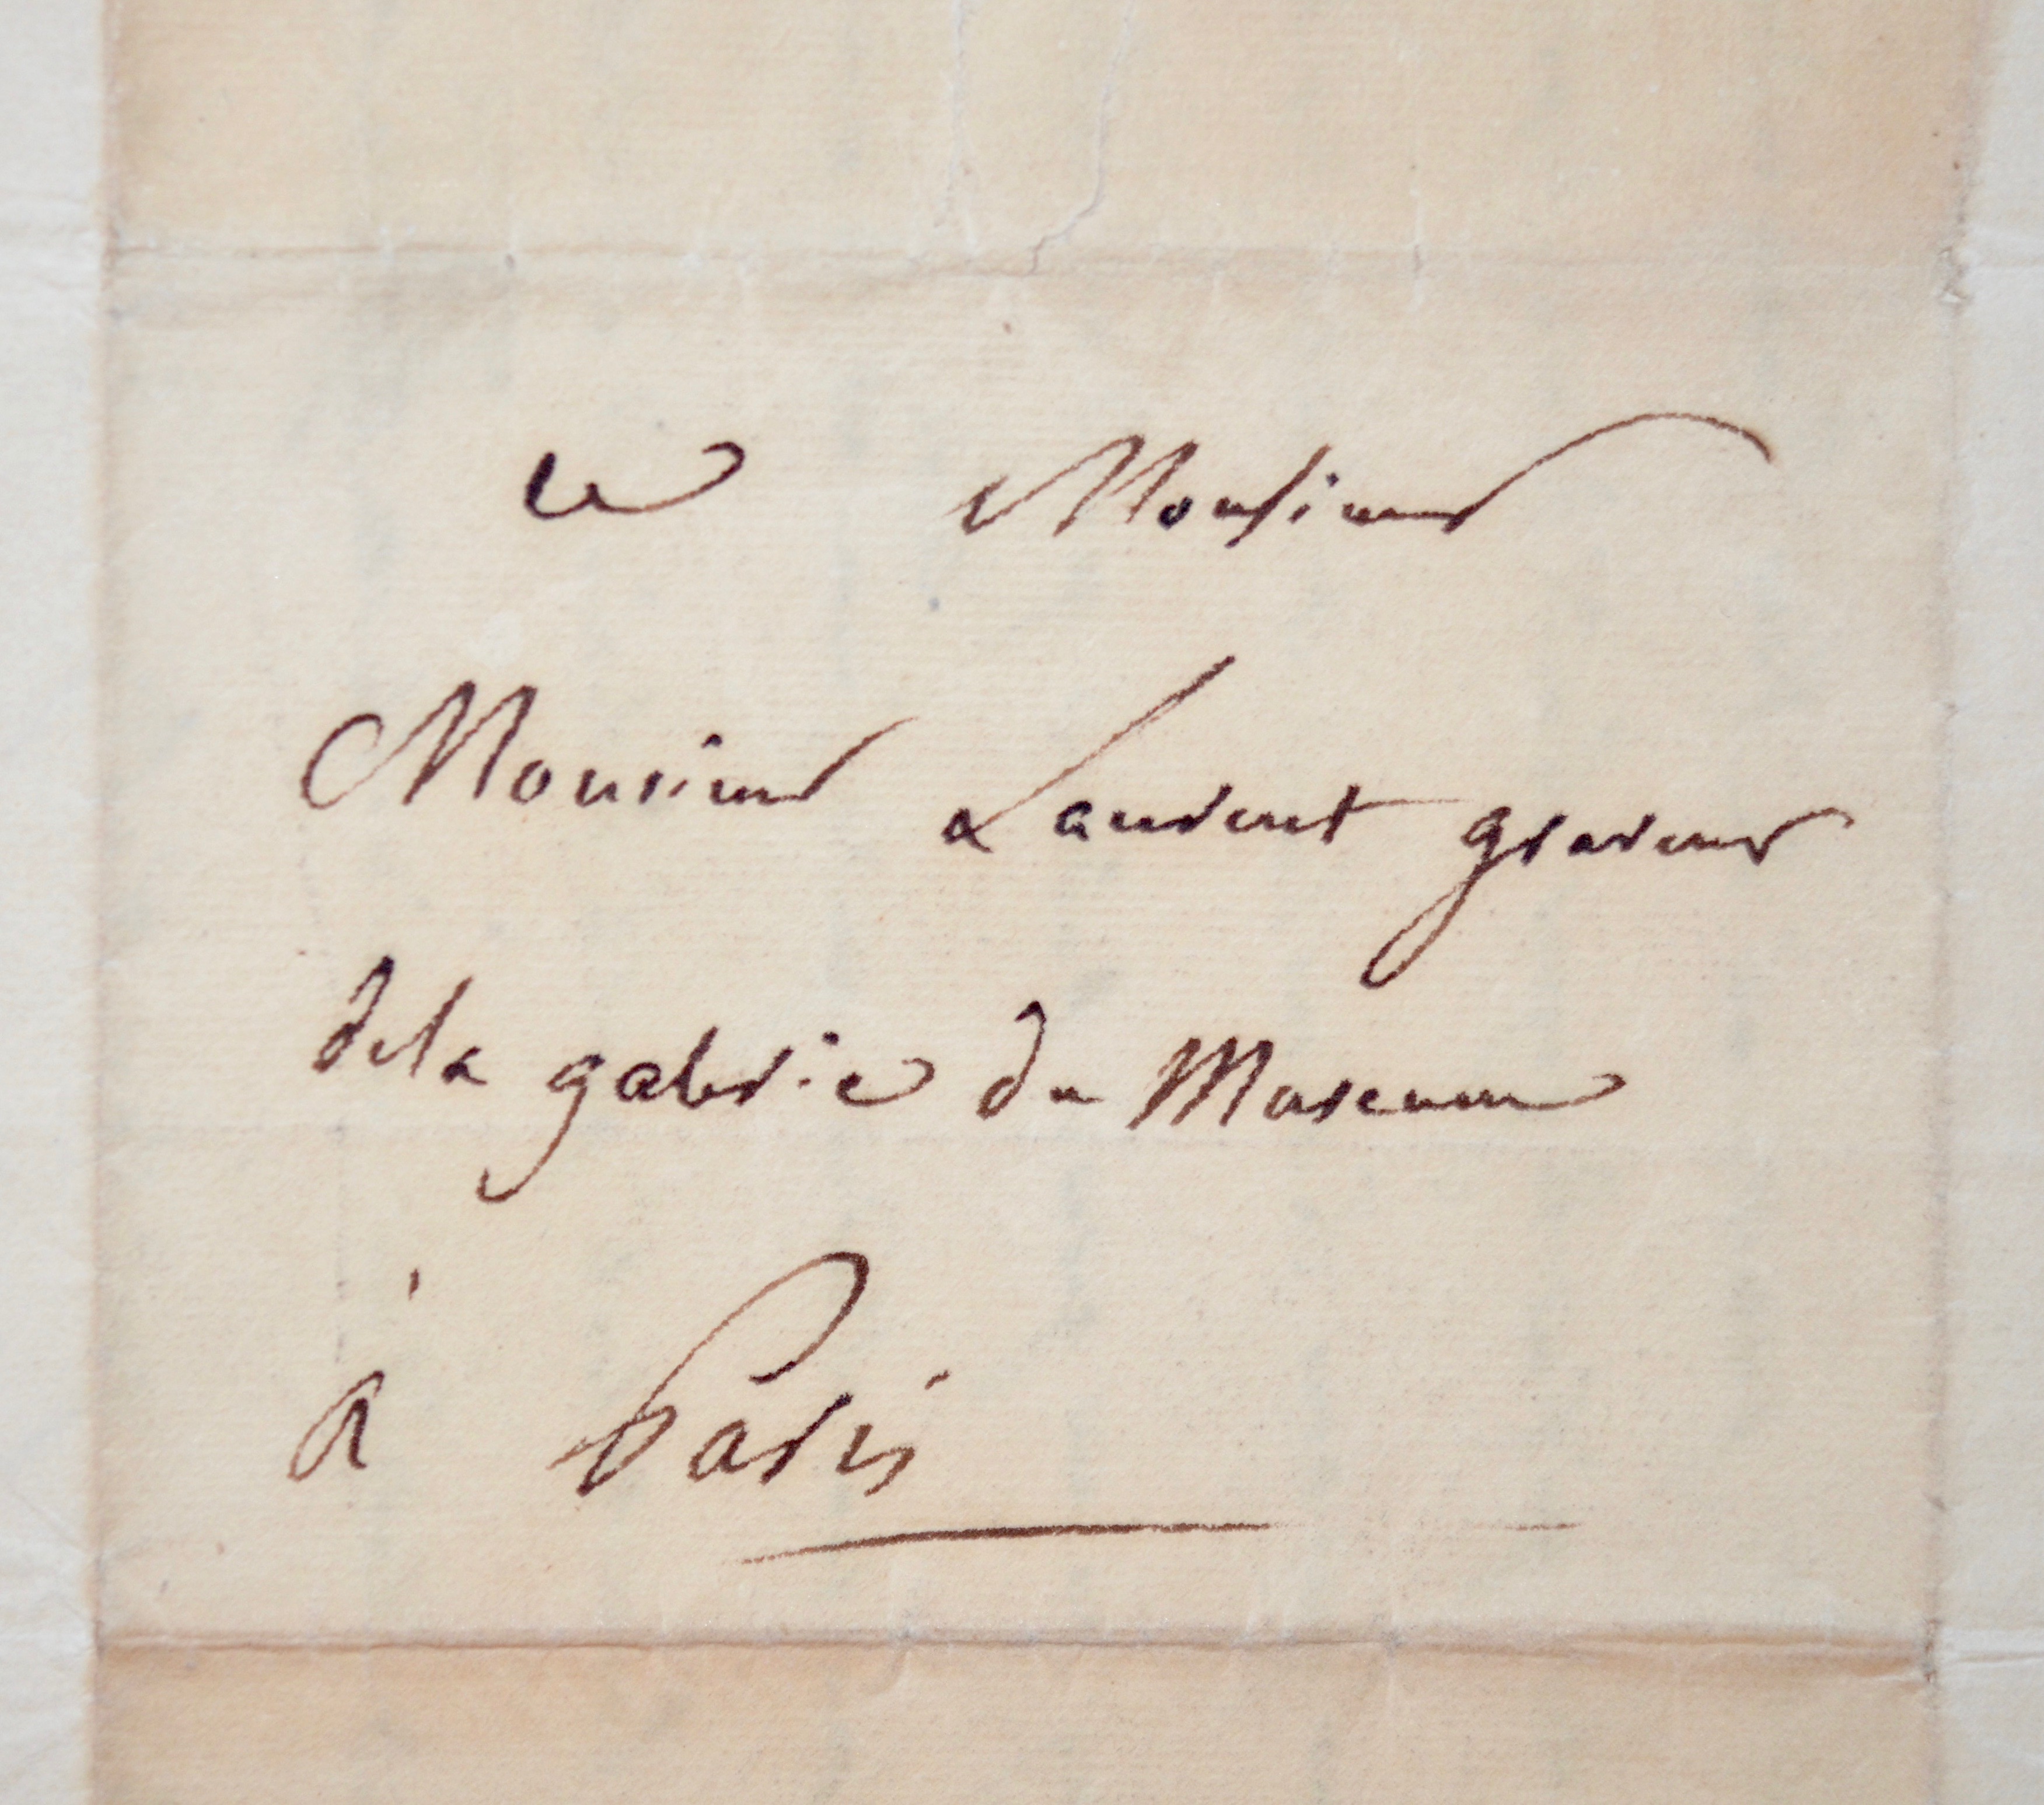 a Monsieur
Monsieur Laurent graveur
de la galerie du Museum
à Paris